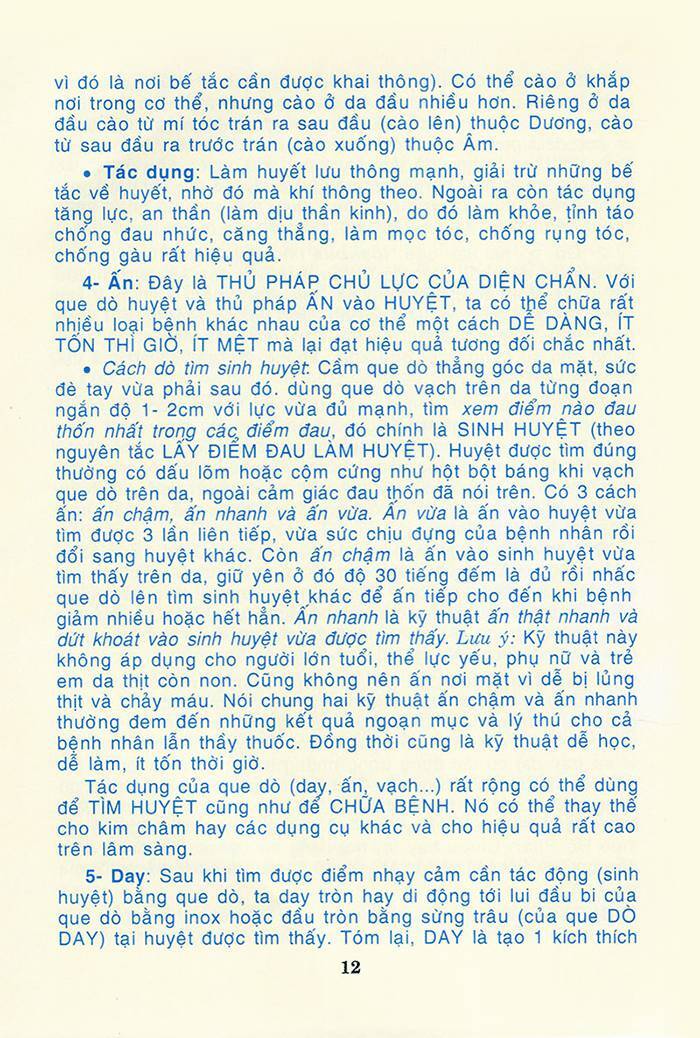 vì đó là nơi bế tắc cần được khai thông). Có thể cào ở khắp
nơi trong cơ thể, nhưng cào ở da đầu nhiều hơn. Riêng ở da
đầu cào từ mí tóc trán ra sau đầu (cào lên) thuộc Dương, cào
từ sau đầu ra trước trán (cào xuống) thuộc Âm.
• Tác dụng: Làm huyết lưu thông mạnh, giải trừ những bế
tắc về huyết, nhờ đó mà khí thông theo. Ngoài ra còn tác dụng
tăng lực, an thần (làm dịu thần kinh), do đó làm khỏe, tỉnh táo
chống đau nhức, căng thẳng, làm mọc tóc, chống rụng tóc,
chống gàu rất hiệu quả.
4- Ấn: Đây là THỦ PHÁP CHỦ LỰC CỦA DIỆN CHẨN. Với
que dò huyệt và thủ pháp ẤN vào HUYỆT, ta có thể chữa rất
nhiều loại bệnh khác nhau của cơ thể một cách DỄ DÀNG, ÍT
TỐN THÌ GIỜ, ÍT MỆT mà lại đạt hiệu quả tương đối chắc nhất.
• Cách dò tìm sinh huyệt: Cầm que dò thẳng góc da mặt, sức
đè tay vừa phải sau đó. dùng que dò vạch trên da từng đoạn
ngắn độ 1- 2cm với lực vừa đủ mạnh, tìm xem điểm nào đau
thốn nhất trong các điểm đau, đó chính là SINH HUYỆT (theo
nguyên tắc LẤY ĐIỂM ĐAU LÀM HUYỆT). Huyệt được tìm đúng
thường có dấu lõm hoặc cộm cứng như hột bột báng khi vạch
que dò trên da, ngoài cảm giác đau thốn đã nói trên. Có 3 cách
ấn: ấn chậm, ấn nhanh và ấn vừa. Ấn vừa là ấn vào huyệt vừa
tìm được 3 lần liên tiếp, vừa sức chịu đựng của bệnh nhân rồi
đổi sang huyệt khác. Còn ấn chậm là ấn vào sinh huyệt vừa
tìm thấy trên da, giữ yên ở đó độ 30 tiếng đếm là đủ rồi nhấc
que dò lên tìm sinh huyệt khác để ấn tiếp cho đến khi bệnh
giảm nhiều hoặc hết hẳn. Ấn nhanh là kỹ thuật ấn thật nhanh và
dứt khoát vào sinh huyệt vừa được tìm thấy. Lưu ý: Kỹ thuật này
không áp dụng cho người lớn tuổi, thể lực yếu, phụ nữ và trẻ
em da thịt còn non. Cũng không nên ấn nơi mặt vì dễ bị lủng
thịt và chảy máu. Nói chung hai kỹ thuật ấn chậm và ấn nhanh
thường đem đến những kết quả ngoạn mục và lý thú cho cả
bệnh nhân lẫn thầy thuốc. Đồng thời cũng là kỹ thuật dễ học,
dễ làm, ít tốn thời giờ.
Tác dụng của que dò (day, ấn, vạch...) rất rộng có thể dùng
để TÌM HUYỆT cũng như để CHỮA BỆNH. Nó có thể thay thế
cho kim châm hay các dụng cụ khác và cho hiệu quả rất cao
trên lâm sàng.
5- Day: Sau khi tìm được điểm nhạy cảm cần tác động (sinh
huyệt) bằng que dò, ta day tròn hay di động tới lui đầu bi của
que dò bằng inox hoặc đầu tròn bằng sừng trâu (của que DÒ
DAY) tại huyệt được tìm thấy. Tóm lại, DAY là tạo 1 kích thích
12